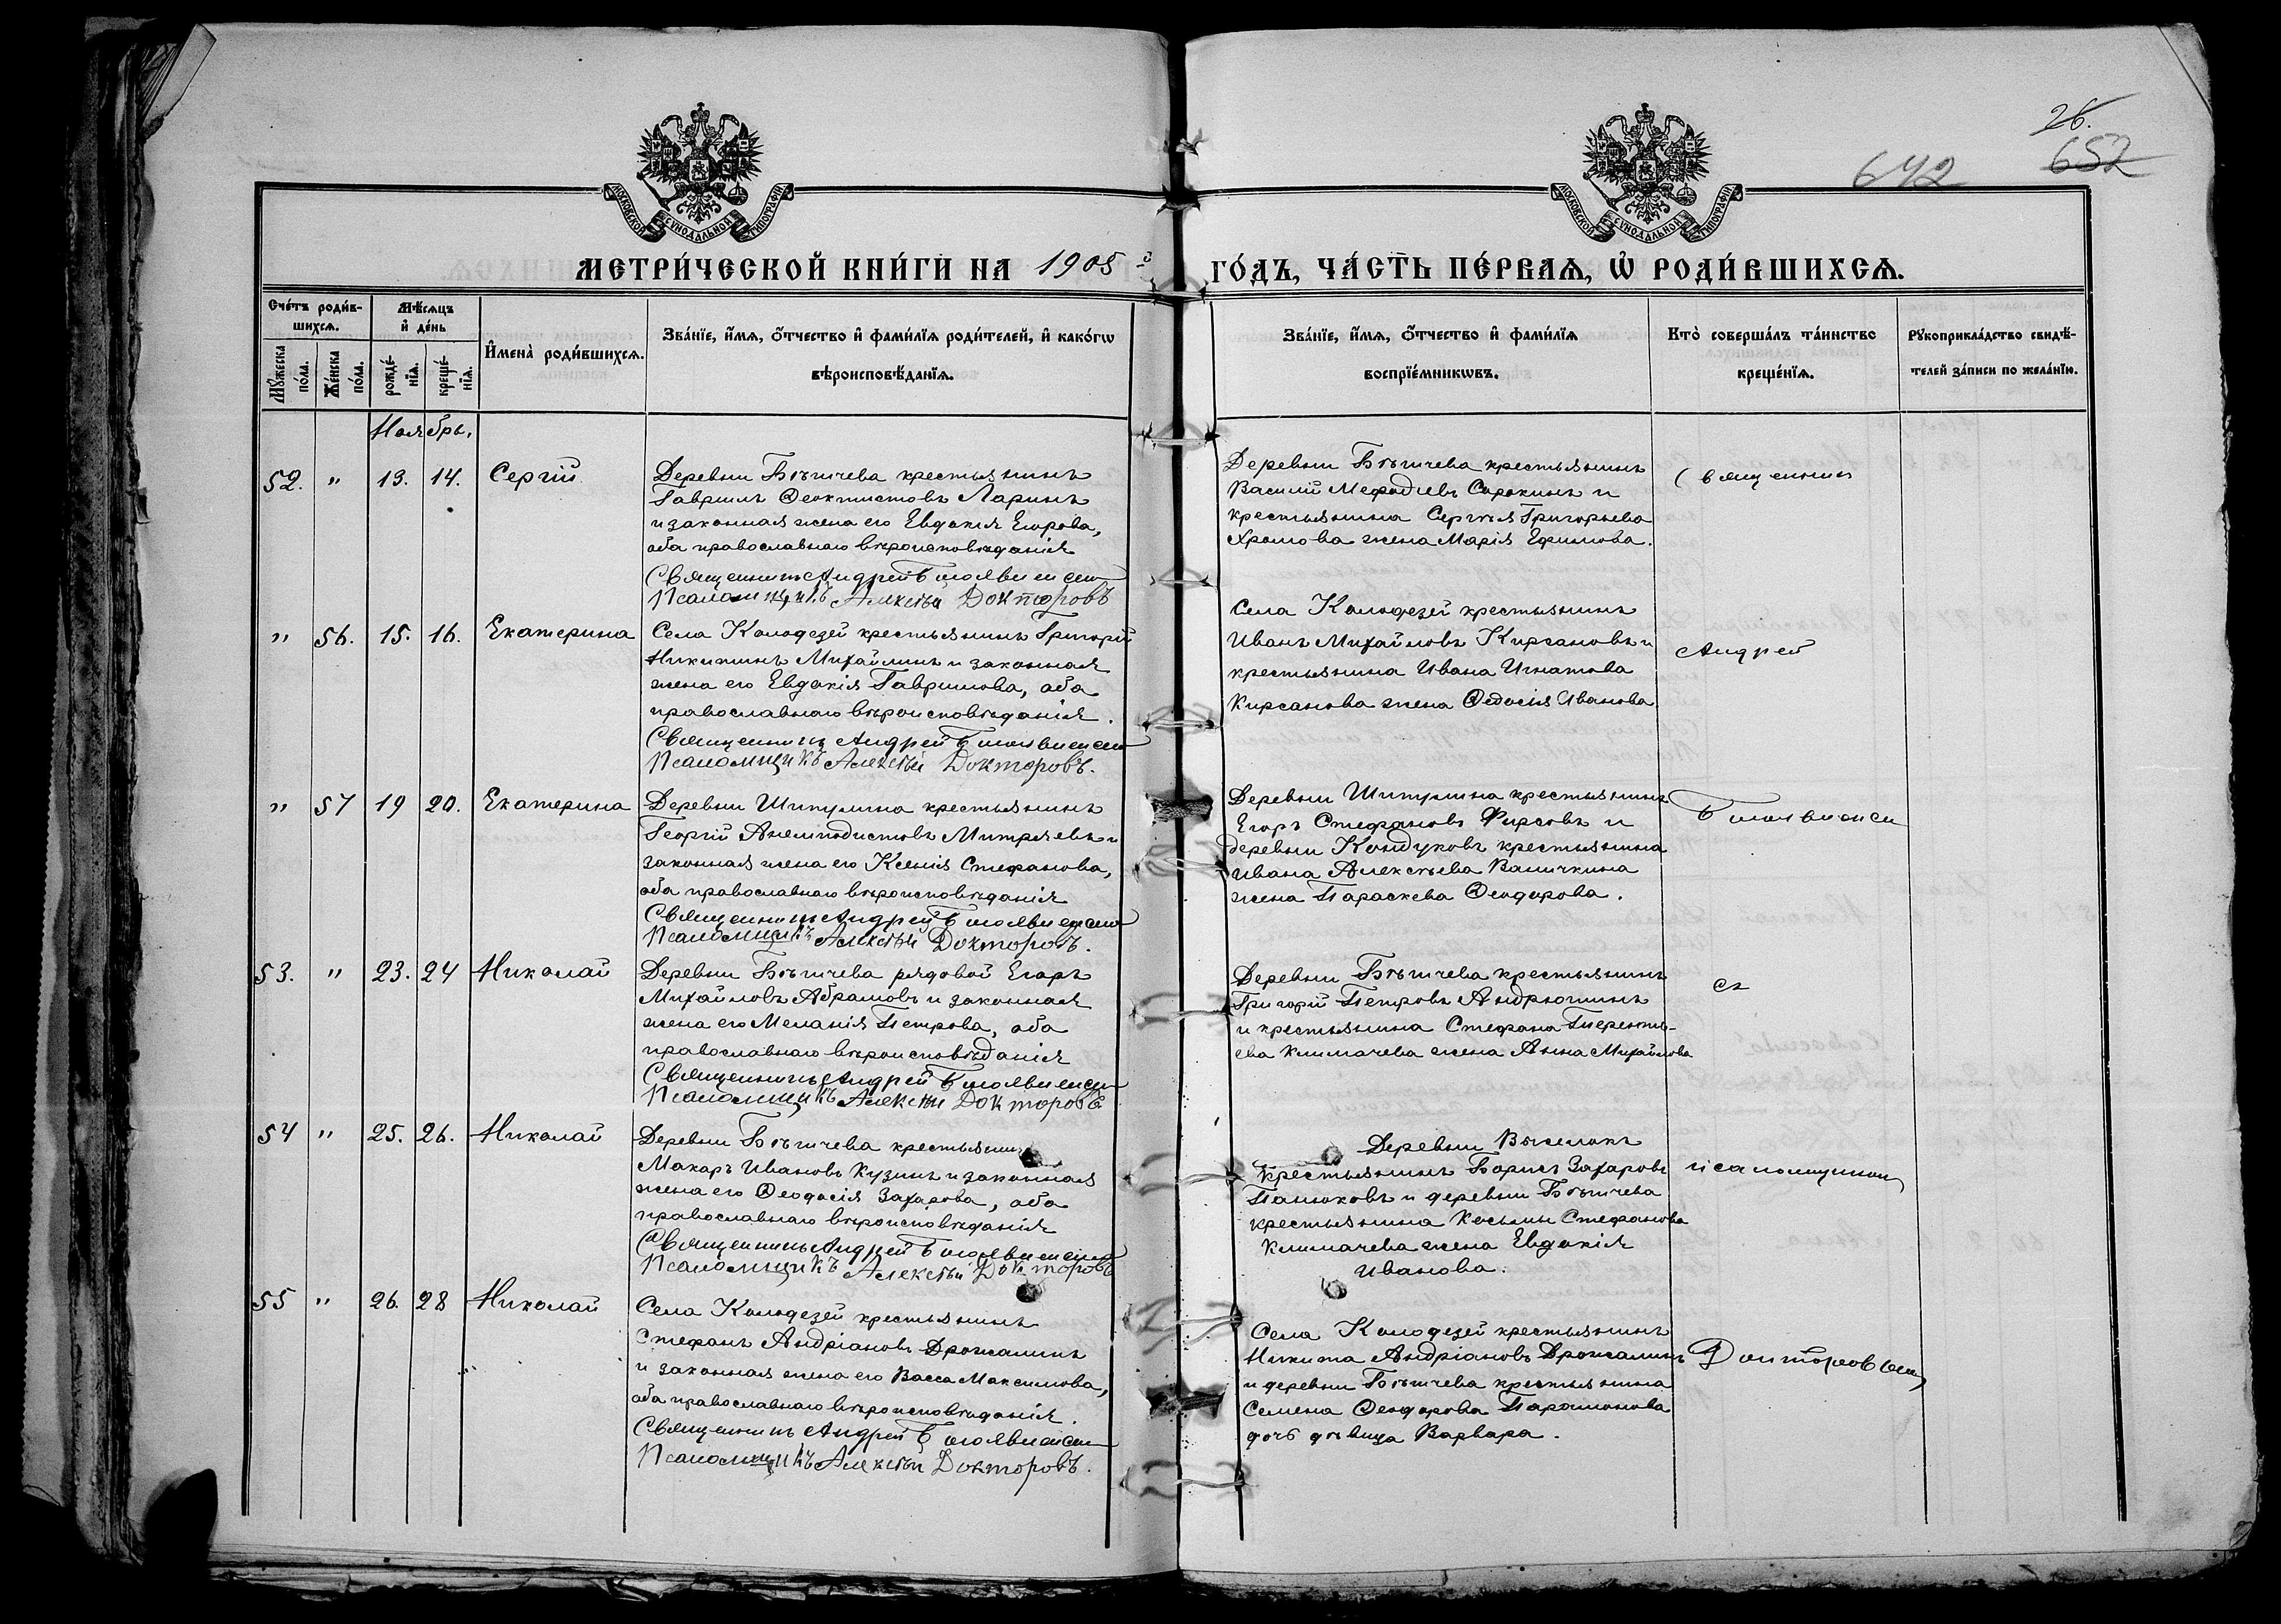 26.
642 652
МОСКОВСКОЙ СѴНОДАЛЬНОЙ ТИПОГРАФІИ
МОСКОВСКОЙ СѴНОДАЛЬНОЙ ТИПОГРАФІИ
МЕТРИ́ЧЕСКОЙ КНИ́ГИ НА 1905 й ГО́ДЪ, ЧА́СТЬ ПЕ́РВАѦ, Ѡ҆ РОДИ́ВШИХСѦ.
Сче́тъ роди́в-
шихсѧ.
Мꙋ́жеска по́ла.
Же́нска по́ла.
Мѣ́сѧцъ
и҆ де́нь
рожде́-
нїѧ.
креще́-
нїѧ.
И҆мена̀ роди́вшихсѧ.
Зва́нїе, и҆́мѧ, о҆́тчество и҆ фами́лїѧ роди́телей, и҆ како́гѡ
вѣроисповѣ́данїѧ.
Зва́нїе, и҆́мѧ, о҆́тчество и҆ фами́лїѧ
воспрїе́мникѡвъ.
Кто̀ соверша́лъ та́инство
креще́нїѧ.
Рꙋкоприкла́дство свидѣ́-
телей за́писи по жела́нїю.
Ноябрь.
52. " 13. 14. Сергій
Деревни Бѣтчева крестьянинъ
Гавріилъ Ѳеоктистовъ Ларинъ
и законная жена его Евдокія Егорова,
оба православнаго вѣроисповѣданія
Священникъ Андрей Богоявленскій
Псаломщикъ Алексѣй Докторовъ
Деревни Бѣтчева крестьянинъ
Василій Мефодіевъ Сорокинъ и
крестьянина Сергѣя Григорьева
Хромова жена Марія Ефимова.
Священник
" 56. 15. 16. Екатерина
Села Колодезей крестьянинъ Григорій
Никитинъ Михайлинъ и законная
жена его Евдокія Гаврилова, оба
православнаго вѣроисповѣданія.
Священникъ Андрей Богоявленскій
Псаломщикъ Алексѣй Докторовъ.
Села Колодезей крестьянинъ
Иванъ Михайловъ Кирсановъ и
крестьянина Ивана Игнатова
Кирсанова жена Ѳедосія Иванова
Андрей
" 57 19 20. Екатерина
Деревни Шитулина крестьянинъ
Георгій Анемподистовъ Митряевъ и
законная жена его Ксенія Стефанова,
оба православнаго вѣроисповѣданія
Священникъ Андрей Богоявленскій
Псаломщикъ Алексѣй Докторовъ.
Деревни Шитулина крестьянинъ
Егоръ Стефановъ Фирсовъ и
деревни Кондуковъ крестьянина
Ивана Алексѣева Ваничкина
жена Параскева Ѳеодорова.
Богоявленскій
53. " 23. 24 Николай
Деревни Бѣтчева рядовой Егоръ
Михайловъ Абрамовъ и законная
жена его Меланія Петрова, оба
православнаго вѣроисповѣданія
Священникъ Андрей Богоявленскій
Псаломщикъ Алексѣй Докторовъ
Деревни Бѣтчева крестьянинъ
Григорій Петровъ Андрюшинъ
и крестьянина Стефана Терентье-
ева Климачева жена Анна Михайлова
съ
54 " 25. 26. Николай
Деревни Бѣтчева крестьянинъ
Макаръ Ивановъ Кузинъ и законная
жена его Ѳеодосія Захарова, оба
православнаго вѣроисповѣданія
Священникъ Андрей Богоявленскій
Псаломщикъ Алексѣй Докторовъ
Деревни Выселокъ
крестьянинъ Борисъ Захаровъ
Панюковъ и деревни Бѣтчева
крестьянина Косьмы Стефанова
Климачева жена Евдокія
Иванова.
псаломщиком
55 " 26. 28 Николай
Села Колодезей крестьянинъ
Стефанъ Андріановъ Дрожалинъ
и законная жена его Васса Максимова,
оба православнаго вѣроисповѣданія.
Священникъ Андрей Богоявленскій
Псаломщикъ Алексѣй Докторовъ.
Села Колодезей крестьянинъ
Никита Андріановъ Дрожалинъ
и деревни Бѣтчева крестьянина
Семена Ѳеодорова Парамонова
дочь дѣвица Варвара.
Докторовым